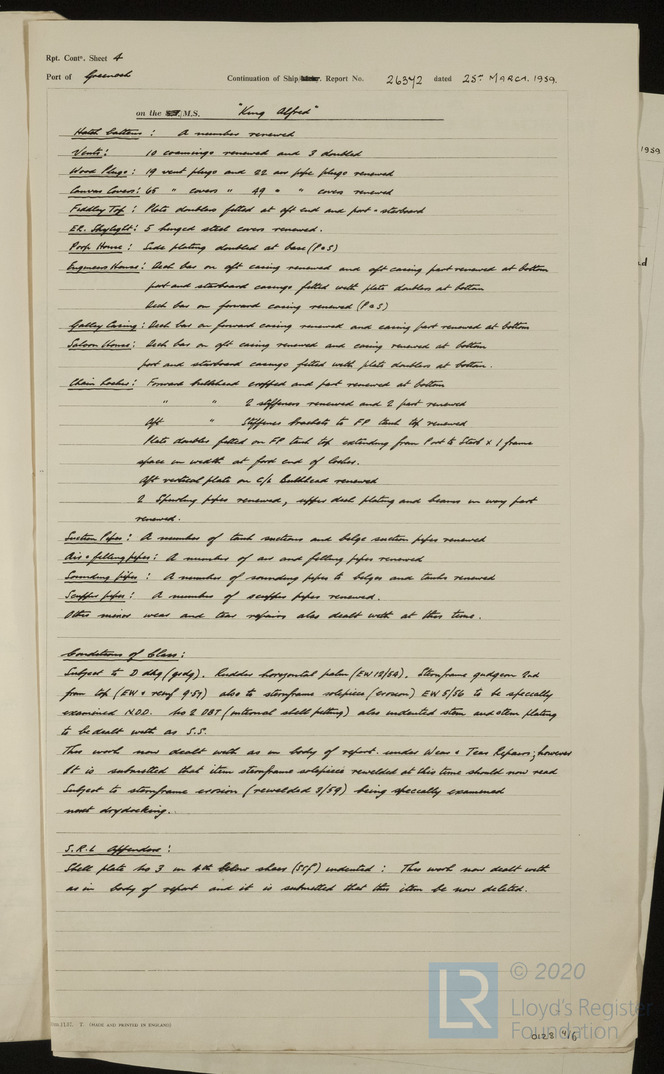 Rpt. Contn. Sheet 4
Port of Greenock Continuation of Ship Report No. 26372 dated 25th MARCH. 1959.
1959
on the M.S. "King Alfred"
Hatch battens : A number renewed
Vents : 10 coamings renewed and 3 doubled
Wood Plugs : 19 vent plugs and 22 air pipe plugs renewed
Canvas Covers : 65 " covers " 49 " " covers renewed
Fiddley Top : Plate doublers fitted at aft end and port & starboard
E.R. Skylight : 5 hinged steel covers renewed.
Poop House : Side plating doubled at base (P & S)
Engineers House : Deck bar on aft casing renewed and aft casing part renewed at bottom
port and starboard casings fitted with plate doublers at bottom
Deck bar on forward casing renewed (P & S)
Galley Casing : Deck bar on forward casing renewed and casing part renewed at bottom
Saloon House : Deck bar on aft casing renewed and casing renewed at bottom
port and starboard casings fitted with plate doublers at bottom.
Chain Locker : Forward bulkhead cropped and part renewed at bottom
" " 2 stiffeners renewed and 2 part renewed
Aft " Stiffener brackets to FP tank top renewed
Plate doubler fitted on FP tank top extending from Port to Starb x 1 frame
space in width at ford end of locker.
Aft vertical plate on C/L Bulkhead renewed
2 Spurling pipes renewed, upper deck plating and beams in way part
renewed.
Suction Pipes : A number of tank suctions and bilge suction pipes renewed
Air & filling pipes : A number of air and filling pipes renewed
Sounding pipes : A number of sounding pipes to bilges and tanks renewed
Scupper pipes : A number of scupper pipes renewed.
Other minor wear and tear repairs also dealt with at this time.
Conditions of Class :
Subject to D dkg (grdg). Rudder horizontal palm (EW 12/54). Sternframe gudgeon 2nd
from top (EW & reinf 9.57) also to sternframe solepiece (erosion) EW 5/56 to be specially
examined N.D.D. No 2 DBT (internal shell pitting) also indented stem and stern plating
to be dealt with as S.S.
This work now dealt with as in body of report under Wear & Tear Repairs; however
it is submitted that item sternframe solepiece rewelded at this time should now read
Subject to sternframe erosion (rewelded 3/59) being specially examined
next drydocking.
S.R.L Appendix :
Shell plate No 3 in 4th below sheer (Stf) indented : This work now dealt with
as in body of report and it is submitted that this item be now deleted.
T. (MADE AND PRINTED IN ENGLAND)
LR © 2020
Lloyd's Register
Foundation
0128 4/6